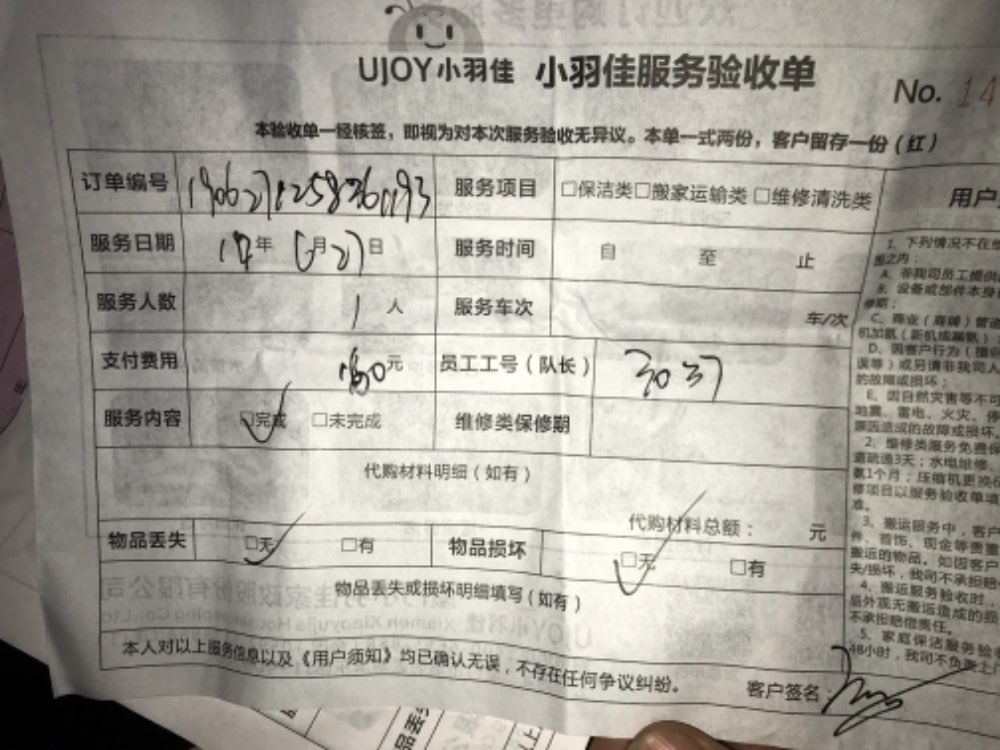 UJOY小羽佳 小羽佳服务验收单
No. 14
本验收单一经核签，即视为对本次服务验收无异议。本单一式两份，客户留存一份（红）
订单编号 服务项目 □保洁类□搬家运输类 □维修清洗类
服务日期 年 6月27日 服务时间 自 至 止
服务人数 1人 服务车次 车/次
支付费用 元 员工工号（队长） 3037
服务内容 □完成 □未完成 维修类保修期
代购材料明细（如有）
代购材料总额： 元
物品丢失 □无 □有 物品损坏 □无 □有
物品丢失或损坏明细填写（如有）
本人对以上服务信息以及《用户须知》均已确认无误，不存在任何争议纠纷。
客户签名：
用户
1、下列情况不在
围之内：
A、非我司员工提供
B、设备或部件本身
修期；
C、商业（商铺）
机加氨（新机或漏氨）
D、因客户行为（擅
误等）或另请非我司人
的故障或损坏；
E、因自然灾害等不可
地震、雷电、火灾、
原因造成的故障或损坏
2、维修类服务免费保
道疏通3天；水电维修、
氨1个月；压缩机更换
修项目以服务验收单填
准。
3、搬运服务中，客户
件、首饰、现金等贵重
搬运的物品。如因客户
失/损坏，我司不承担赔
4、搬运服务验收时，
品外观无搬运造成的损
不承担赔偿责任。
5、家庭保洁服务验收
48小时，我司不负责上